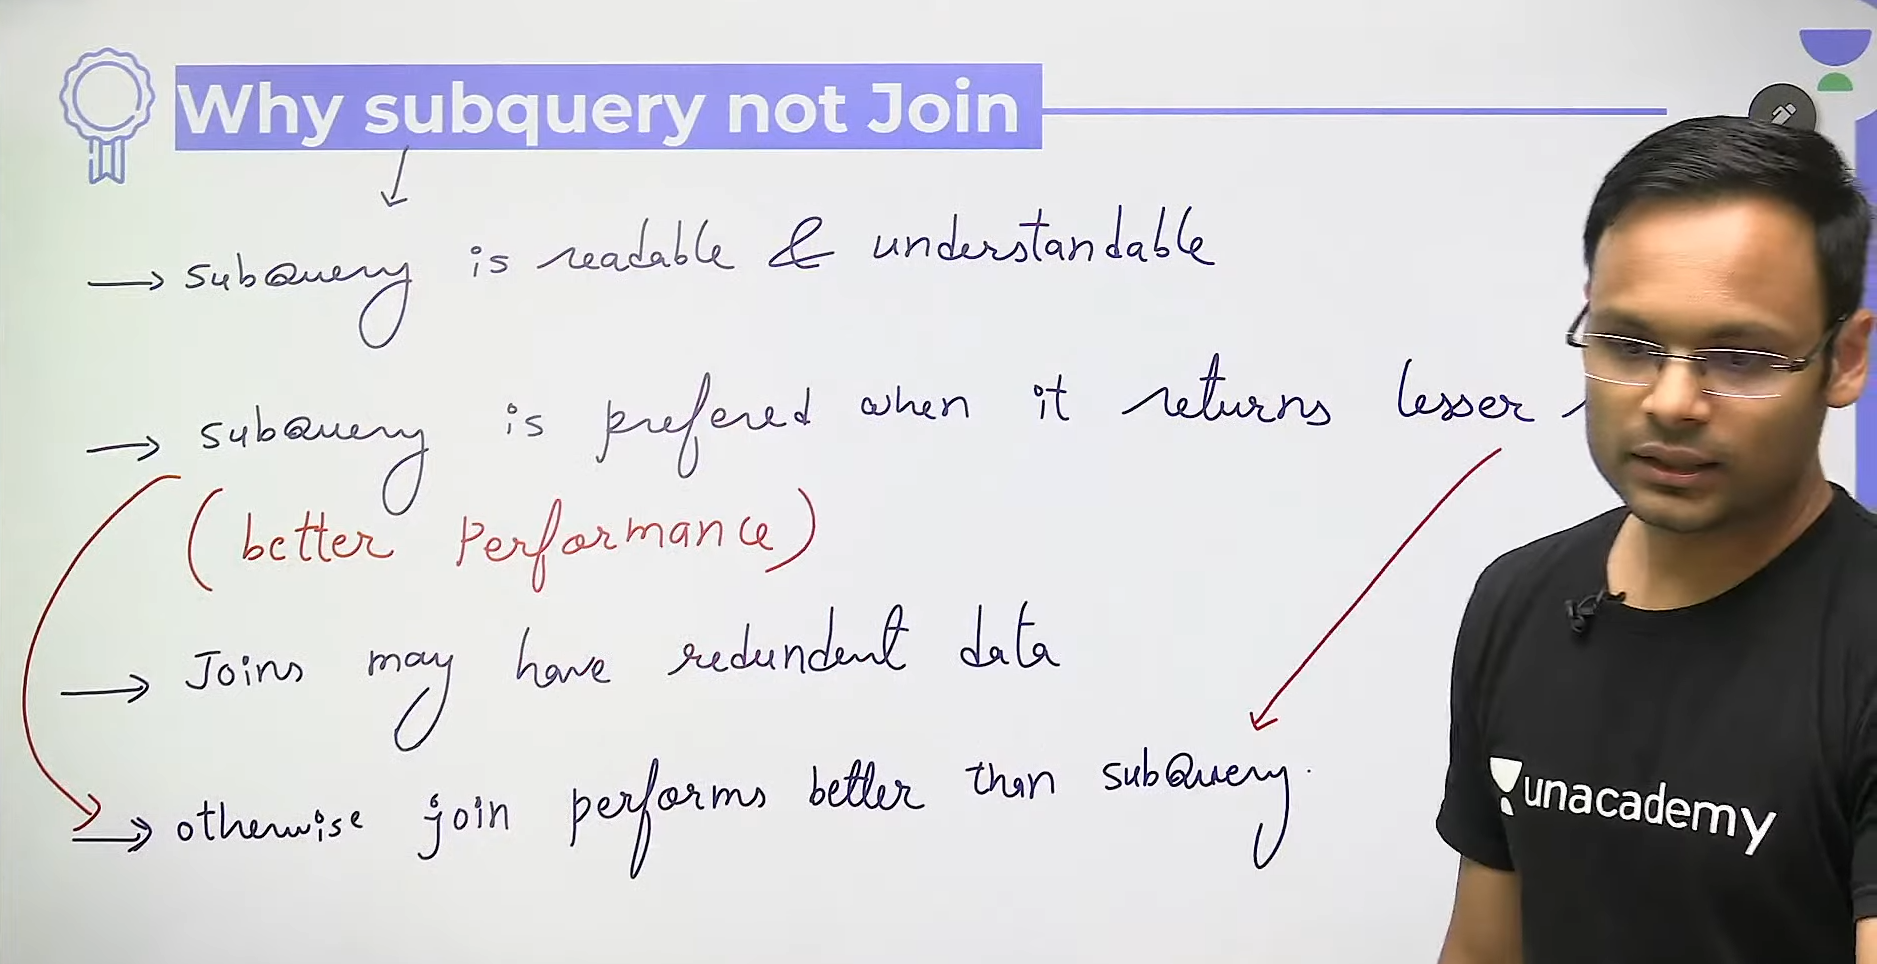 Why subquery not Join
→ subQuery is readable & understandable
→ subQuery is prefered when it returns lesser
(better Performance)
→ Joins may have redundent data
→ otherwise join performs better than subQuery.
unacademy